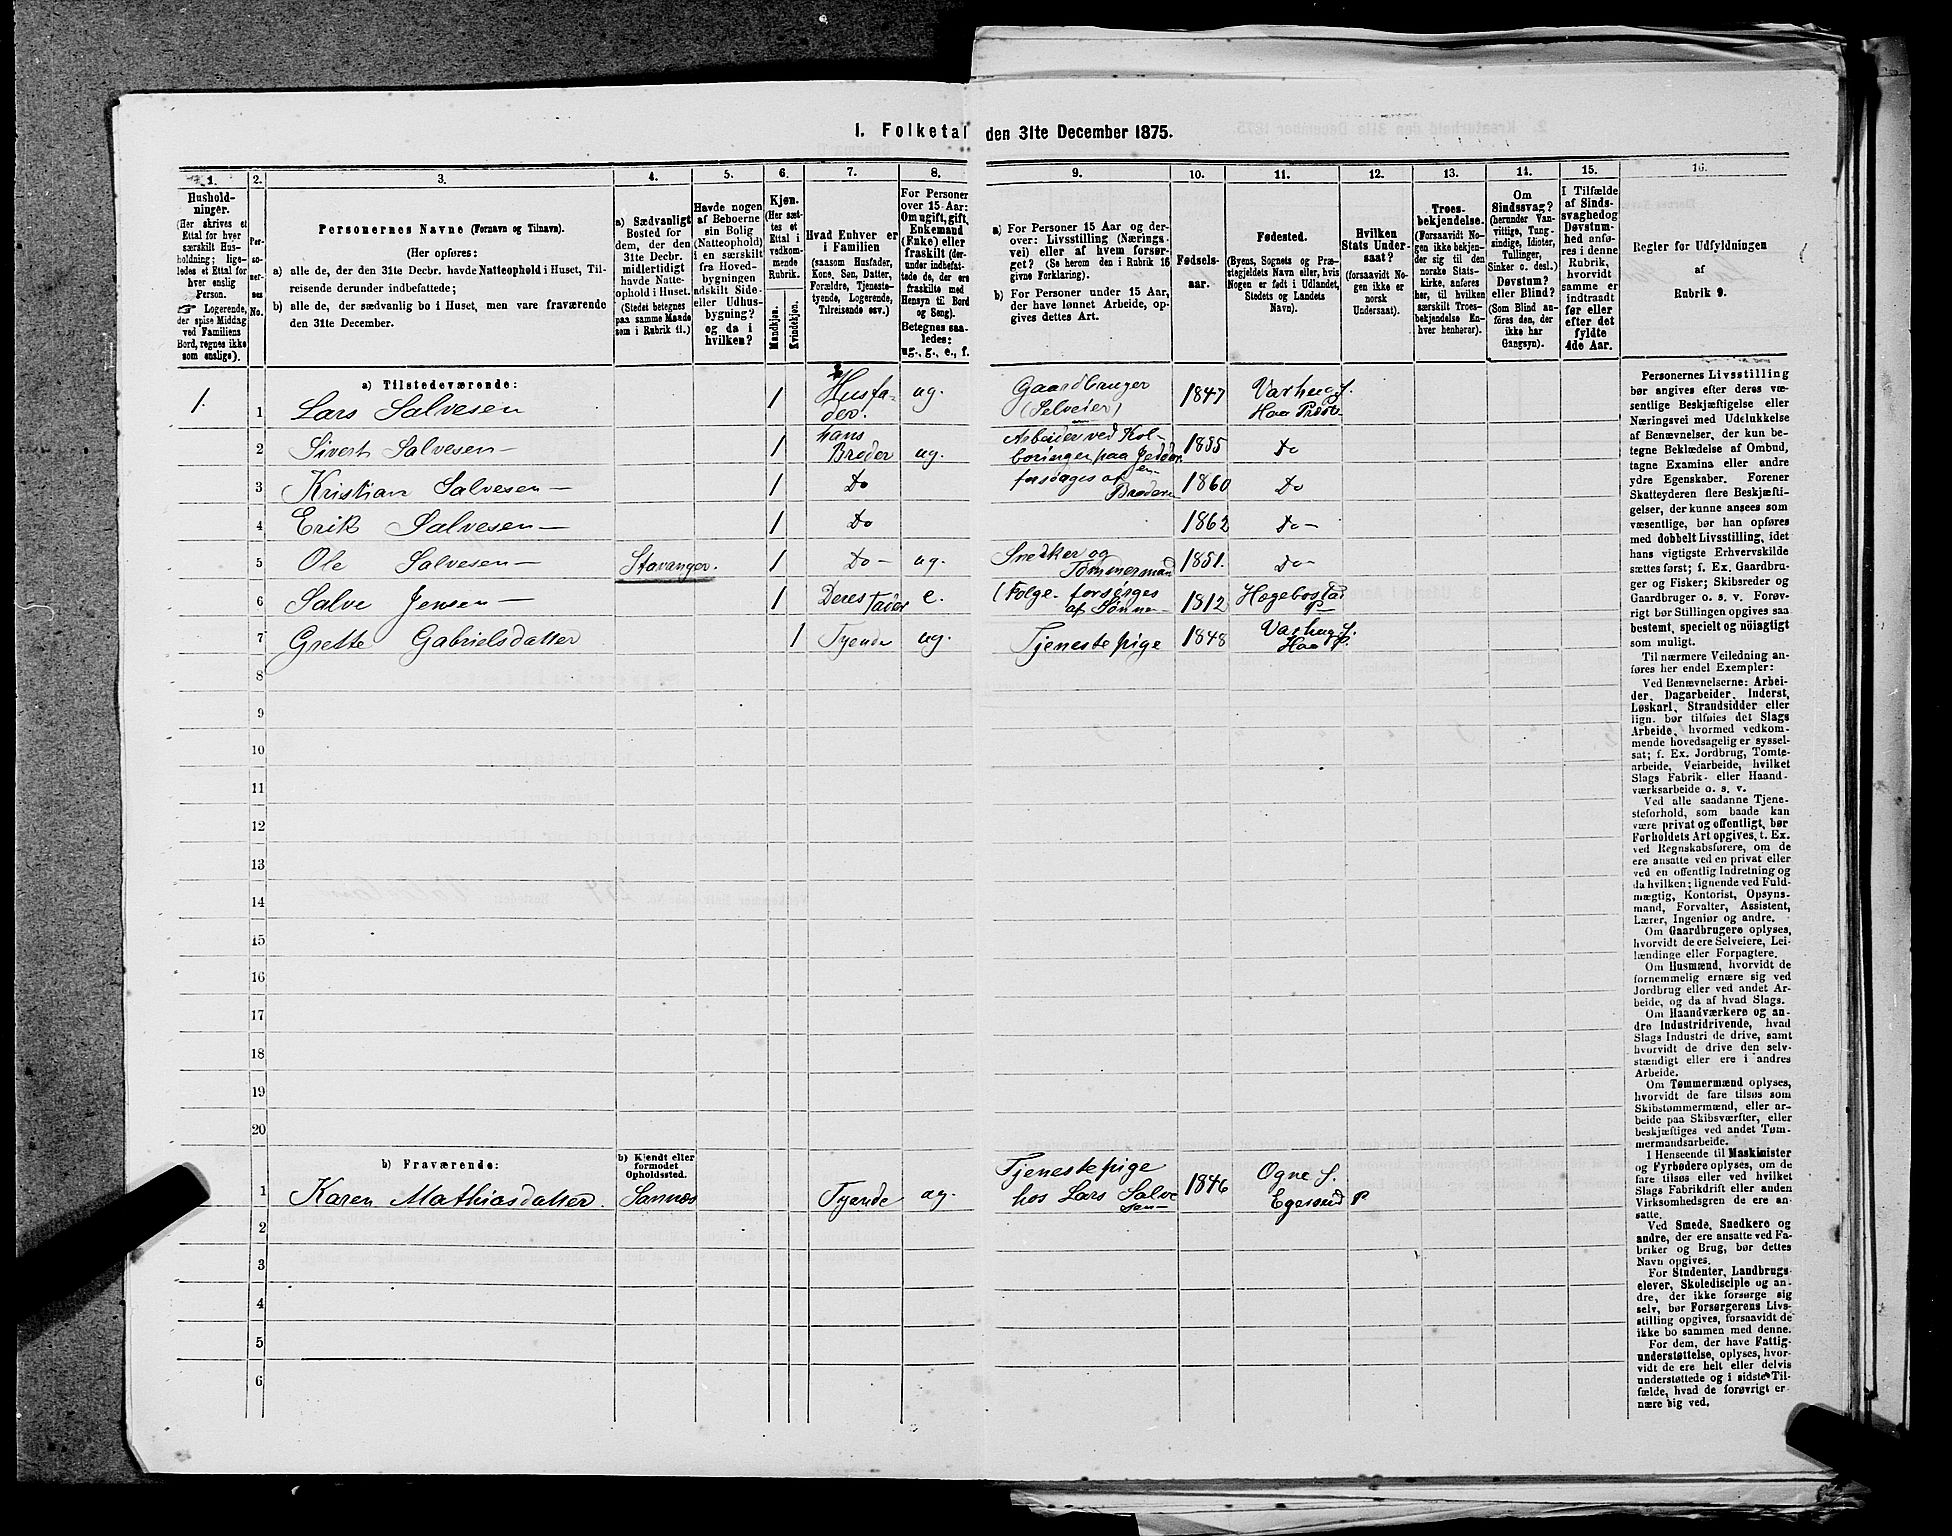 1. Folketal den 31te December 1875.
1.
Hushold-
ninger.
(Her skrives et
Ettal for hver
særskilt Hus-
holdning; lige-
ledes et Ettal for
hver enslig
Person.
☞ Logerende,
der spise Middag
ved Familiens
Bord, regnes ikke
som enslige).
2.
Per-
soner-
nes
No.
3.
Personernes Navne (Fornavn og Tilnavn).
(Her opføres:
a) alle de, der den 31te Decbr. havde Natteophold i Huset, Til-
reisende derunder indbefattede;
b) alle de, der sædvanlig bo i Huset, men vare fraværende
den 31te December.
4.
a) Sædvanligt
Bosted for
dem, der den
31te Decbr.
midlertidigt
havde Natte-
ophold i Huset.
(Stedet betegnes
paa samme Maade
som i Rubrik 11.)
5.
Havde nogen
af Beboerne
sin Bolig
(Natteophold)
i en særskilt
fra Hoved-
bygningen
adskilt Side-
eller Udhus-
bygning?
og da i
hvilken?
6.
Kjøn.
(Her sæt-
tes et
Ettal i
vedkom-
mende
Rubrik.
Mandkjøn.
Kvindekjøn.
7.
Hvad Enhver er
i Familien
(saasom Husfader,
Kone, Søn, Datter,
Forældre, Tjeneste-
tyende, Logerende,
Tilreisende osv.)
8.
For Personer
over 15 Aar:
Om ugift, gift,
Enkemand
(Enke) eller
fraskilt (der-
under indbefat-
tede de, der ere
fraskilte med
Hensyn til Bord
og Seng).
Betegnes saa-
ledes:
ug., g., e., f.
9.
a) For Personer 15 Aar og der-
over: Livsstilling (Nærings-
vei) eller af hvem forsør-
get? (Se herom den i Rubrik 16
givne Forklaring).
b) For Personer under 15 Aar,
der have lønnet Arbeide, op-
gives dettes Art.
10.
Fødsels-
aar.
11.
Fødested.
(Byens, Sognets og Præ-
stegjeldets Navn eller, hvis
Nogen er født i Udlandet,
Stedets og Landets
Navn).
12.
Hvilken
Stats Under-
saat?
(forsaavidt No-
gen ikke er
norsk
Undersaat).
13.
Troes-
bekjendelse.
(Forsaavidt No-
gen ikke bekjen-
der sig til den
norske Stats-
kirke, anføres
her, til hvilken
særskilt Troes-
bekjendelse En-
hver henhører).
14.
Om
Sindssvag?
(herunder Van-
vittige, Tung-
sindige, Idioter,
Tullinger,
Sinker o. desl.)
Døvstum?
eller Blind?
(Som Blind an-
føres den, der
ikke har
Gangsyn).
15.
I Tilfælde
af Sinds-
svaghed og
Døvstum-
hed anfø-
res i denne
Rubrik,
hvorvidt
samme er
indtraadt
før eller
efter det
fyldte
4de Aar.
16.
Regler for Udfyldningen
af
Rubrik 9.
a) Tilstedeværende:
1. 1 Lars Salvesen 1 Husfa-
der. ug. Gaardbruger
(Selveier) 1847 Varhug S.
Haa Præst.
2 Sivert Salvesen — 1 hans
Broder ug. Arbeider ved Kol-
boringer paa Jedderen 1855 Do
3 Kristian Salvesen — 1 Do forsørges af
Broderen 1860 Do
4 Erik Salvesen — 1 Do 1862 Do —
5 Ole Salvesen — Stavanger. 1 Do — ug. Snedker og
Tømmermand 1851. Do —
6 Salve Jensen — 1 Deres Fader e. (Folge- forsørges
af Sønne — 1812 Hægebostad
P
7 Grette Gabrielsdatter 1 Tyende ug. Tjenestepige 1848 Varhug S.
Haa P.
8
9
10
11
12
13
14
15
16
17
18
19
20
b) Fraværende:
b) Kjendt eller
formodet
Opholdssted.
1 Karen Mathiasdatter. Sannæs Tyende ug. Tjenestepige
hos Lars Salve
sen — 1846 Ogne S.
Egersund P
2
3
4
5
6
Personernes Livsstilling
bør angives efter deres væ-
sentlige Beskjæftigelse eller
Næringsvei med Udelukkelse
af Benævnelser, der kun be-
tegne Beklædelse af Ombud,
tagne Examina eller andre
ydre Egenskaber. Forener
Skatteyderen flere Beskjæfti-
gelser, der kunne ansees som
væsentlige, bør han opføres
med dobbelt Livsstilling, idet
hans vigtigste Erhvervskilde
sættes først; f. Ex. Gaardbru-
ger og Fisker; Skibsreder og
Gaardbruger o. s. v. Forøv-
rigt bør Stillingen opgives saa
bestemt, specielt og nöiagtigt
som muligt.
Til nærmere Veiledning an-
føres her endel Exempler:
Ved Benævnelserne: Arbei-
der, Dagarbeider, Inderst,
Løskarl, Strandsidder eller
lign. bør tilføies det Slags
Arbeide, hvormed vedkom-
mende hovedsagelig er syssel-
sat; f. Ex. Jordbrug, Tomte-
arbeide, Veiarbeide, hvilket
Slags Fabrik- eller Haand-
værksarbeide o. s. v.
Ved alle saadanne Tjene-
steforhold, som baade kan
være privat og offentligt, bør
Forholdets Art opgives, t. Ex.
ved Regnskabsførere, om de
ere ansatte ved en privat eller
ved en offentlig Indretning og
da hvilken; lignende ved Fuld-
mægtig, Kontorist, Opsyns-
mand, Forvalter, Assistent,
Lærer, Ingeniør og andre.
Om Gaardbrugere oplyses,
hvorvidt de ere Selveiere, Lei-
lændinge eller Forpagtere.
Om Husmænd, hvorvidt de
fornemmelig ernære sig ved
Jordbrug eller ved andet Ar-
beide, og da af hvad Slags.
Om Haandværkere og an-
dre Industridrivende, hvad
Slags Industri de drive, samt
hvorvidt de drive den selv-
stændigt eller ere i andres
Arbeide.
Om Tømmermænd oplyses,
hvorvidt de fare tilsøs som
Skibstømmermænd, eller ar-
beide paa Skibsværfter, eller
beskjæftiges ved andet Tøm-
mermandsarbeide.
I Henseende til Maskinister
og Fyrbødere oplyses, om de
fare tilsøs eller ved hvilket
Slags Fabrikdrift eller anden
Virksomhedsgren de ere an-
satte.
Ved Smede, Snedkere og
andre, der ere ansatte ved Fa-
briker og Brug, bør dettes
Navn opgives.
For Studenter, Landbrugs-
elever, Skoledisciple og an-
dre, der ikke forsørge sig
selv, bør Forsørgerens Livs-
stilling opgives, forsaavidt de
ikke bo sammen med denne.
For dem, der have Fattig-
understøttelse, oplyses, hvor-
vidt de ere helt eller delvis
understøttede og i sidste Til-
fælde, hvad de forøvrigt er-
nære sig ved.